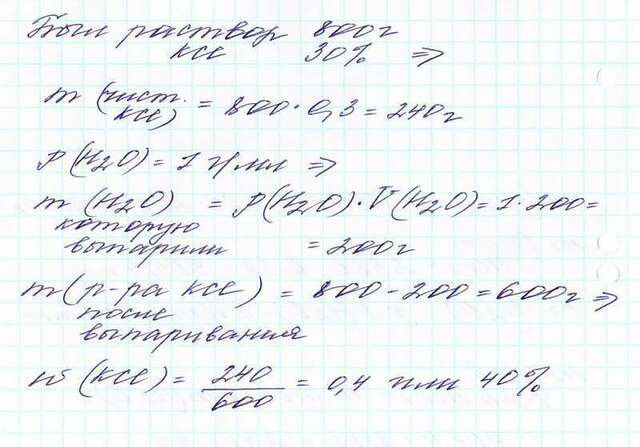 Был раствор 800г
KCl 30% =>
m (чист. KCl) = 800·0,3 = 240г
ρ(H₂O) = 1 г/мл =>
m (H₂O) = ρ(H₂O)·V(H₂O) = 1·200 =
которую
выпарили = 200г
m(р-ра KCl) = 800-200 = 600г =>
после
выпаривания
w (KCl) = 240/600 = 0,4 или 40%